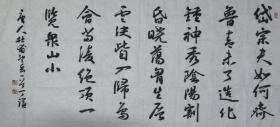 岱宗夫如何齊
魯青未了造化
鍾神秀陰陽割
昏曉蕩胸生層
雲決眥入歸鳥
會當凌絕頂一
覽眾山小
唐人杜甫望岳